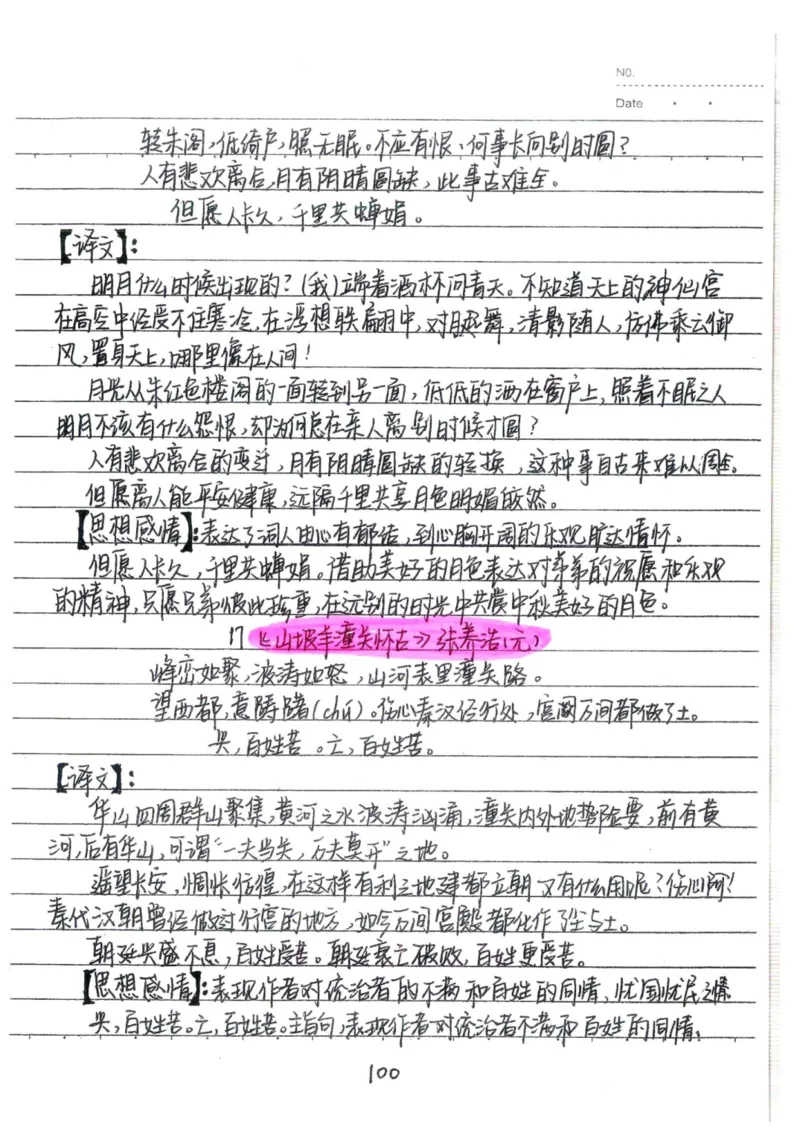 NO.
Date
转朱阁,低绮户,照无眠。不应有恨、何事长向别时圆?
人有悲欢离合,月有阴晴圆缺,此事古难全。
但愿人长久,千里共婵娟。
【译文】:
明月什么时候出现的?(我)端着酒杯问青天。不知道天上的神仙宫
在高空中经受不住寒冷,在浮想联翩中,对月起舞,清影随人,仿佛乘云御
风,置身天上,哪里像在人间!
月光从朱红色楼阁的一面转到另一面,低低的洒在窗户上,照着不眠之人
明月不该有什么怨恨,却为何总在亲人离别时候才圆?
人有悲欢离合的变迁,月有阴晴圆缺的转换,这种事自古来难以周全。
但愿离人能平安健康,远隔千里共享月色明媚皎然。
【思想感情】:表达了词人由心有郁结,到心胸开阔的乐观旷达情怀。
但愿人长久,千里共婵娟。借助美好的月色表达对弟弟的祝愿和乐观
的精神,只愿兄弟彼此珍重,在远别的时光中共赏中秋美好的月色。
17《山坡羊潼关怀古》张养浩(元)
峰峦如聚,波涛如怒,山河表里潼关路。
望西都,意踌躇(chú)。伤心秦汉经行处,宫阙万间都做了土。
兴,百姓苦。亡,百姓苦。
【译文】:
华山四周群山聚集,黄河之水波涛汹涌,潼关内外地势险要,前有黄
河,后有华山,可谓“一夫当关,万夫莫开”之地。
遥望长安,惆怅彷徨,在这样有利之地建都立朝又有什么用呢?伤心啊!
秦代汉朝曾经做过行宫的地方,如今万间宫殿都化作了尘与土。
朝廷兴盛不息,百姓受苦。朝廷衰亡破败,百姓更受苦。
【思想感情】:表现作者对统治者的不满和百姓的同情,忧国忧民之情
兴,百姓苦。亡,百姓苦。主旨句,表现作者对统治者不满和百姓的同情、
100